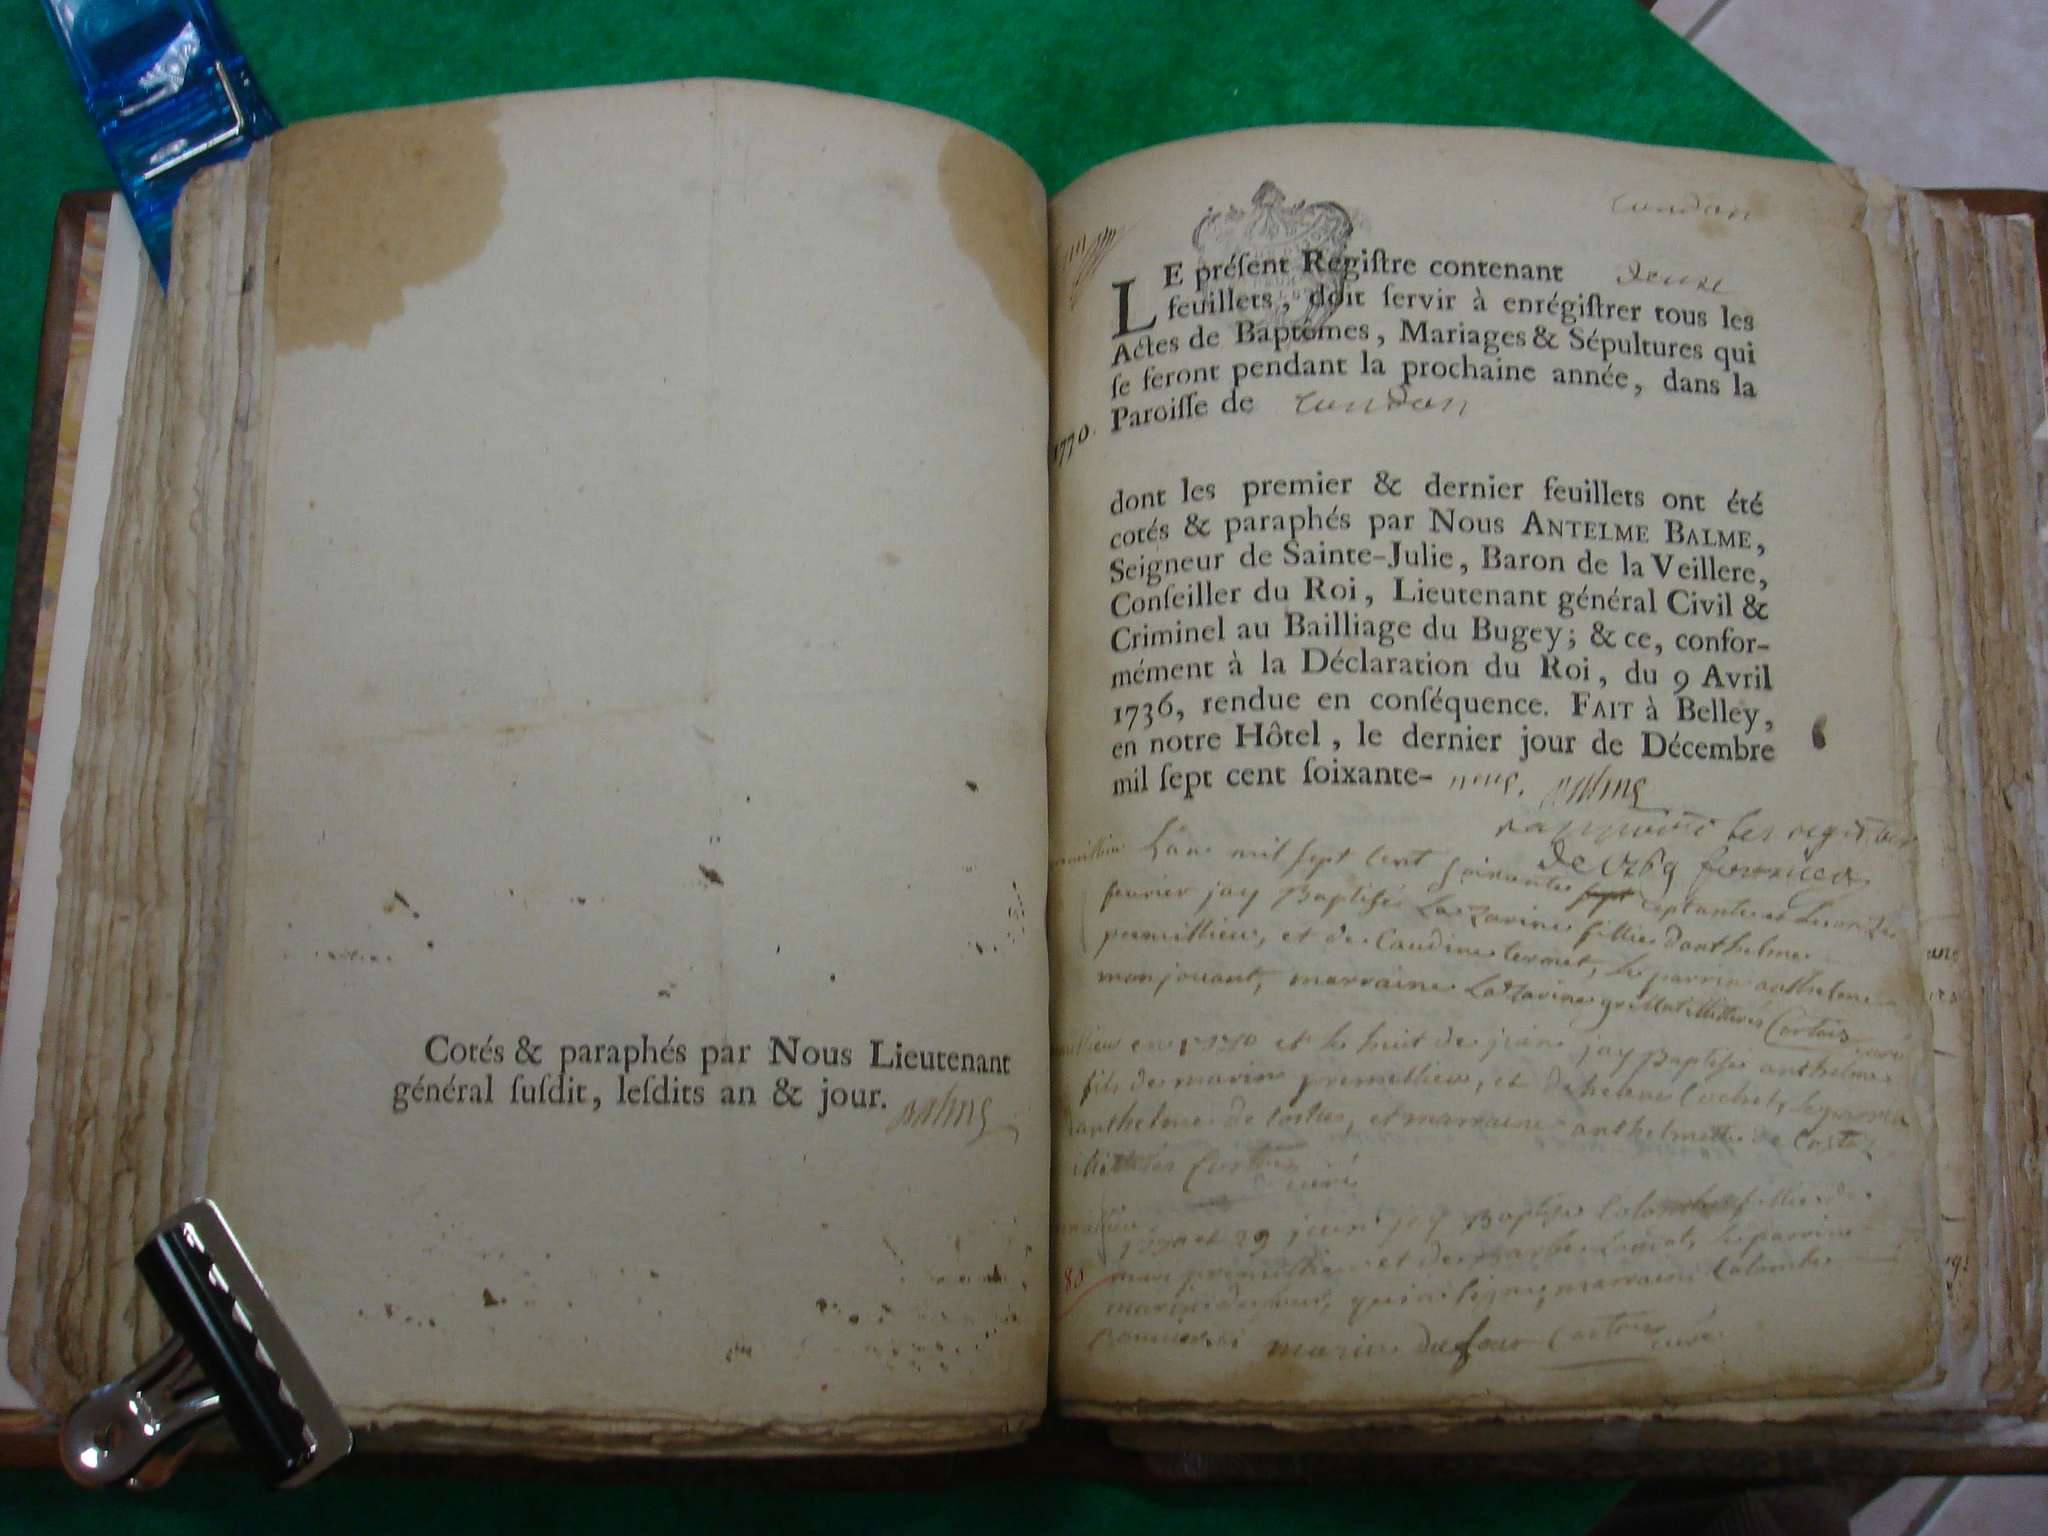 Cotés & paraphés par Nous Lieutenant
général ſuſdit, leſdits an & jour.
cundon
LE préſent Regiſtre contenant deuxe
feuillets, doit ſervir à enrégiſtrer tous les
Actes de Baptêmes, Mariages & Sépultures qui
ſe feront pendant la prochaine année, dans la
Paroiſſe de cundon
1770.
dont les premier & dernier feuillets ont été
cotés & paraphés par Nous ANTELME BALME,
Seigneur de Sainte-Julie, Baron de la Veillere,
Conſeiller du Roi, Lieutenant général Civil &
Criminel au Bailliage du Bugey; & ce, confor-
mément à la Déclaration du Roi, du 9 Avril
1736, rendue en conſéquence. FAIT à Belley,
en notre Hôtel, le dernier jour de Décembre
mil ſept cent ſoixante- neuf. Balme
les registres
de 1769
L'an mil sept cent soixante sept septante et le onze
fevrier jay Baptisé Lazarine fillie danthelme
premillieu, et de Claudine termet, le parrin anthelme
monjouant, marraine Lazarine Cortois curé
en 1770 et le huit de juin jay Baptisé anthelme
fils de marin premillieu, et de helene Cochet, le parrin
anthelme de Costes, et marraine anthelmette de Coste
Cortois
curé
1770 et 29 juin jay Baptisé Colombe fillie de
marc premillieu et de le parrin
80
marin dufour, qui a signé, marraine Colombe
marin dufour Cortois
curé